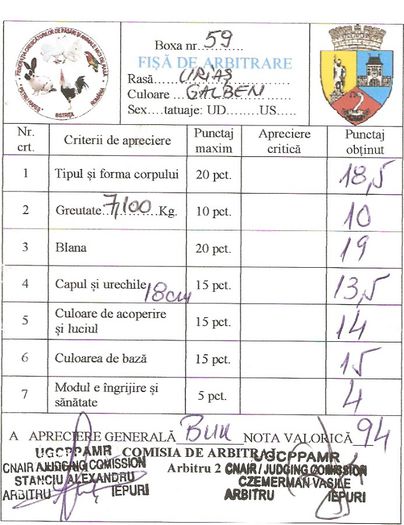 Boxa nr. 59
FIȘĂ DE ARBITRARE
Rasă URIAȘ
Culoare GALBEN
Sex....tatuaje: UD........US.....
Nr. crt. Criterii de apreciere Punctaj maxim Apreciere critică Punctaj obținut
1 Tipul și forma corpului 20 pct. 18,5
2 Greutate 7,100 Kg. 10 pct. 10
3 Blana 20 pct. 19
4 Capul și urechile 18cm 15 pct. 13,5
5 Culoare de acoperire și luciul 15 pct. 14
6 Culoarea de bază 15 pct. 15
7 Modul e îngrijire și sănătate 5 pct. 4
A APRECIERE GENERALĂ Bun NOTA VALORICĂ 94
COMISIA DE ARBITRAJ
UGCPPAMR
CNAIR AJUDGING COMISSION
STANCIU ALEXANDRU
ARBITRU IEPURI
Arbitru 2
UGCPPAMR
CNAIR / JUDGING COMISSION
CZEMERMAN VASILE
ARBITRU IEPURI